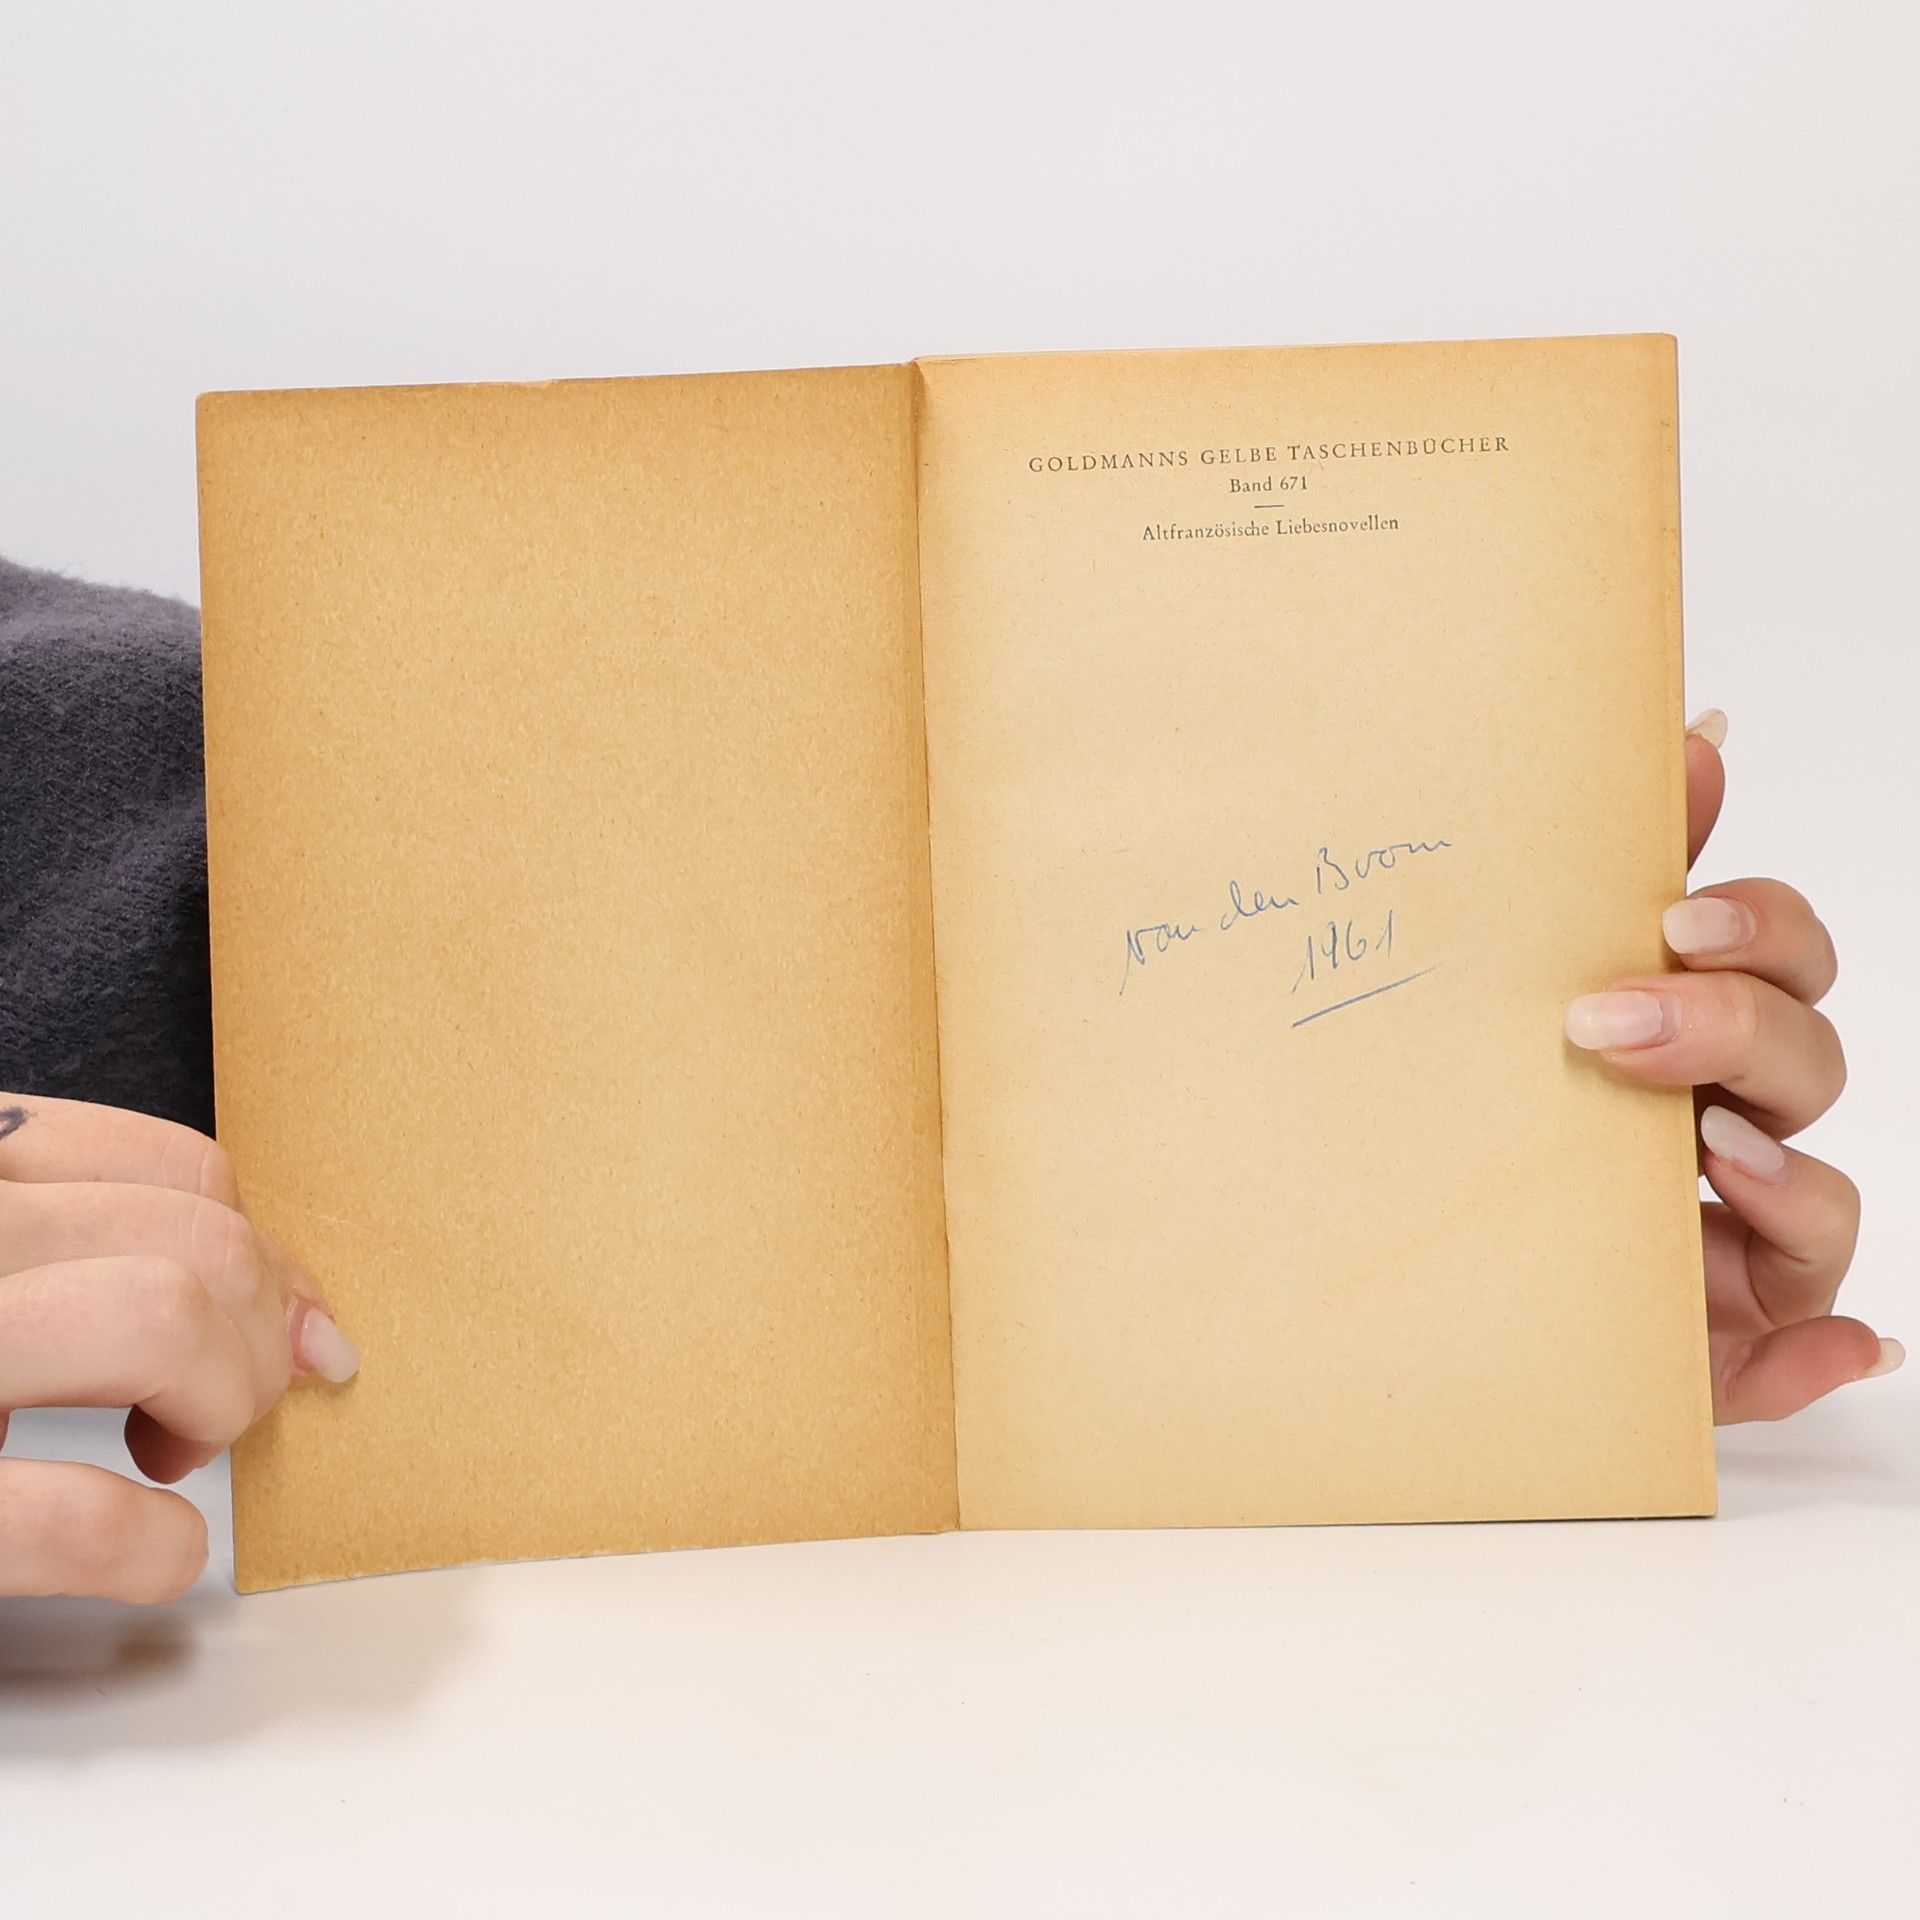 GOLDMANNS GELBE TASCHENBÜCHER
Band 671
Altfranzösische Liebesnovellen
von den Boom
1961